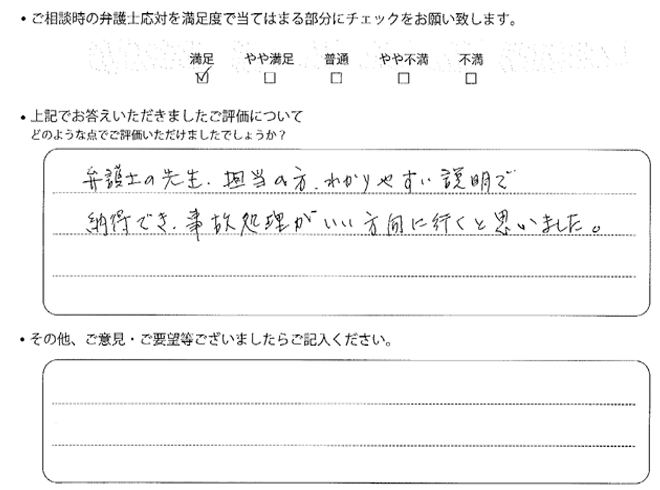 ・ご相談時の弁護士応対を満足度で当てはまる部分にチェックをお願い致します。
満足 やや満足 普通 やや不満 不満
☑ □ □ □ □
・上記でお答えいただきましたご評価について
どのような点でご評価いただけましたでしょうか？
弁護士の先生、担当の方、わかりやすい説明で
納得でき、事故処理がいい方向に行くと思いました。
・その他、ご意見・ご要望等ございましたらご記入ください。